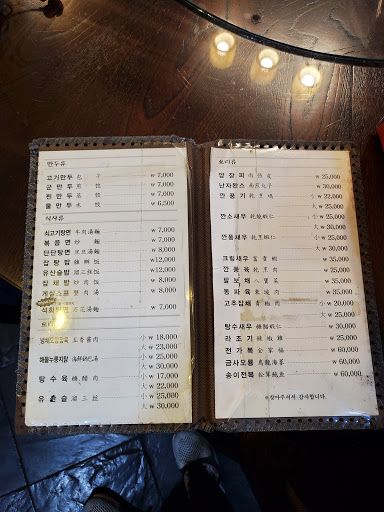 만두류
고기만두 包 子 ₩ 7,000
군만두 煎 餃 ₩ 7,000
찐만두 蒸 餃 ₩ 7,000
물만두 水 餃 ₩ 6,500
식사류
쇠고기탕면 牛肉湯麵 ₩ 7,000
볶음면 炒 麵 ₩ 7,000
단단탕면 ₩ 8,000
잡탕밥 雜 ₩12,000
유산슬밥 溜三絲 ₩12,000
잡채밥 ₩ 8,000
게살스프 蟹肉湯 ₩ 8,000
₩ 7,000
요리류
五香醬肉 小 ₩ 18,000
大 ₩ 23,000
해물누룽지탕 海鮮鍋巴湯 小 ₩ 20,000
大 ₩ 30,000
탕수육 糖醋肉 小 ₩ 17,000
大 ₩ 22,000
유산슬 溜三絲 小 ₩ 20,000
大 ₩ 30,000
요리류
양장피 ₩ 25,000
난자완스 南煎丸子 ₩ 30,000
깐풍기 小 ₩ 22,000
大 ₩ 25,000
깐소새우 小 ₩ 25,000
大 ₩ 35,000
깐풍새우 小 ₩ 25,000
大 ₩ 35,000
크림새우 ₩ 35,000
깐풍육 ₩ 25,000
팔보채 八寶菜 ₩ 35,000
동파육 東坡肉 ₩ 35,000
고추잡채 青椒肉 小 ₩ 20,000
大 ₩ 25,000
탕수새우 糖醋蝦仁 ₩ 30,000
라조기 辣椒鷄 ₩ 25,000
전가복 全家福 ₩ 60,000
금사오룡 ₩ 60,000
송이전복 松茸鮑魚 ₩ 60,000
※찾아주셔서 감사합니다.